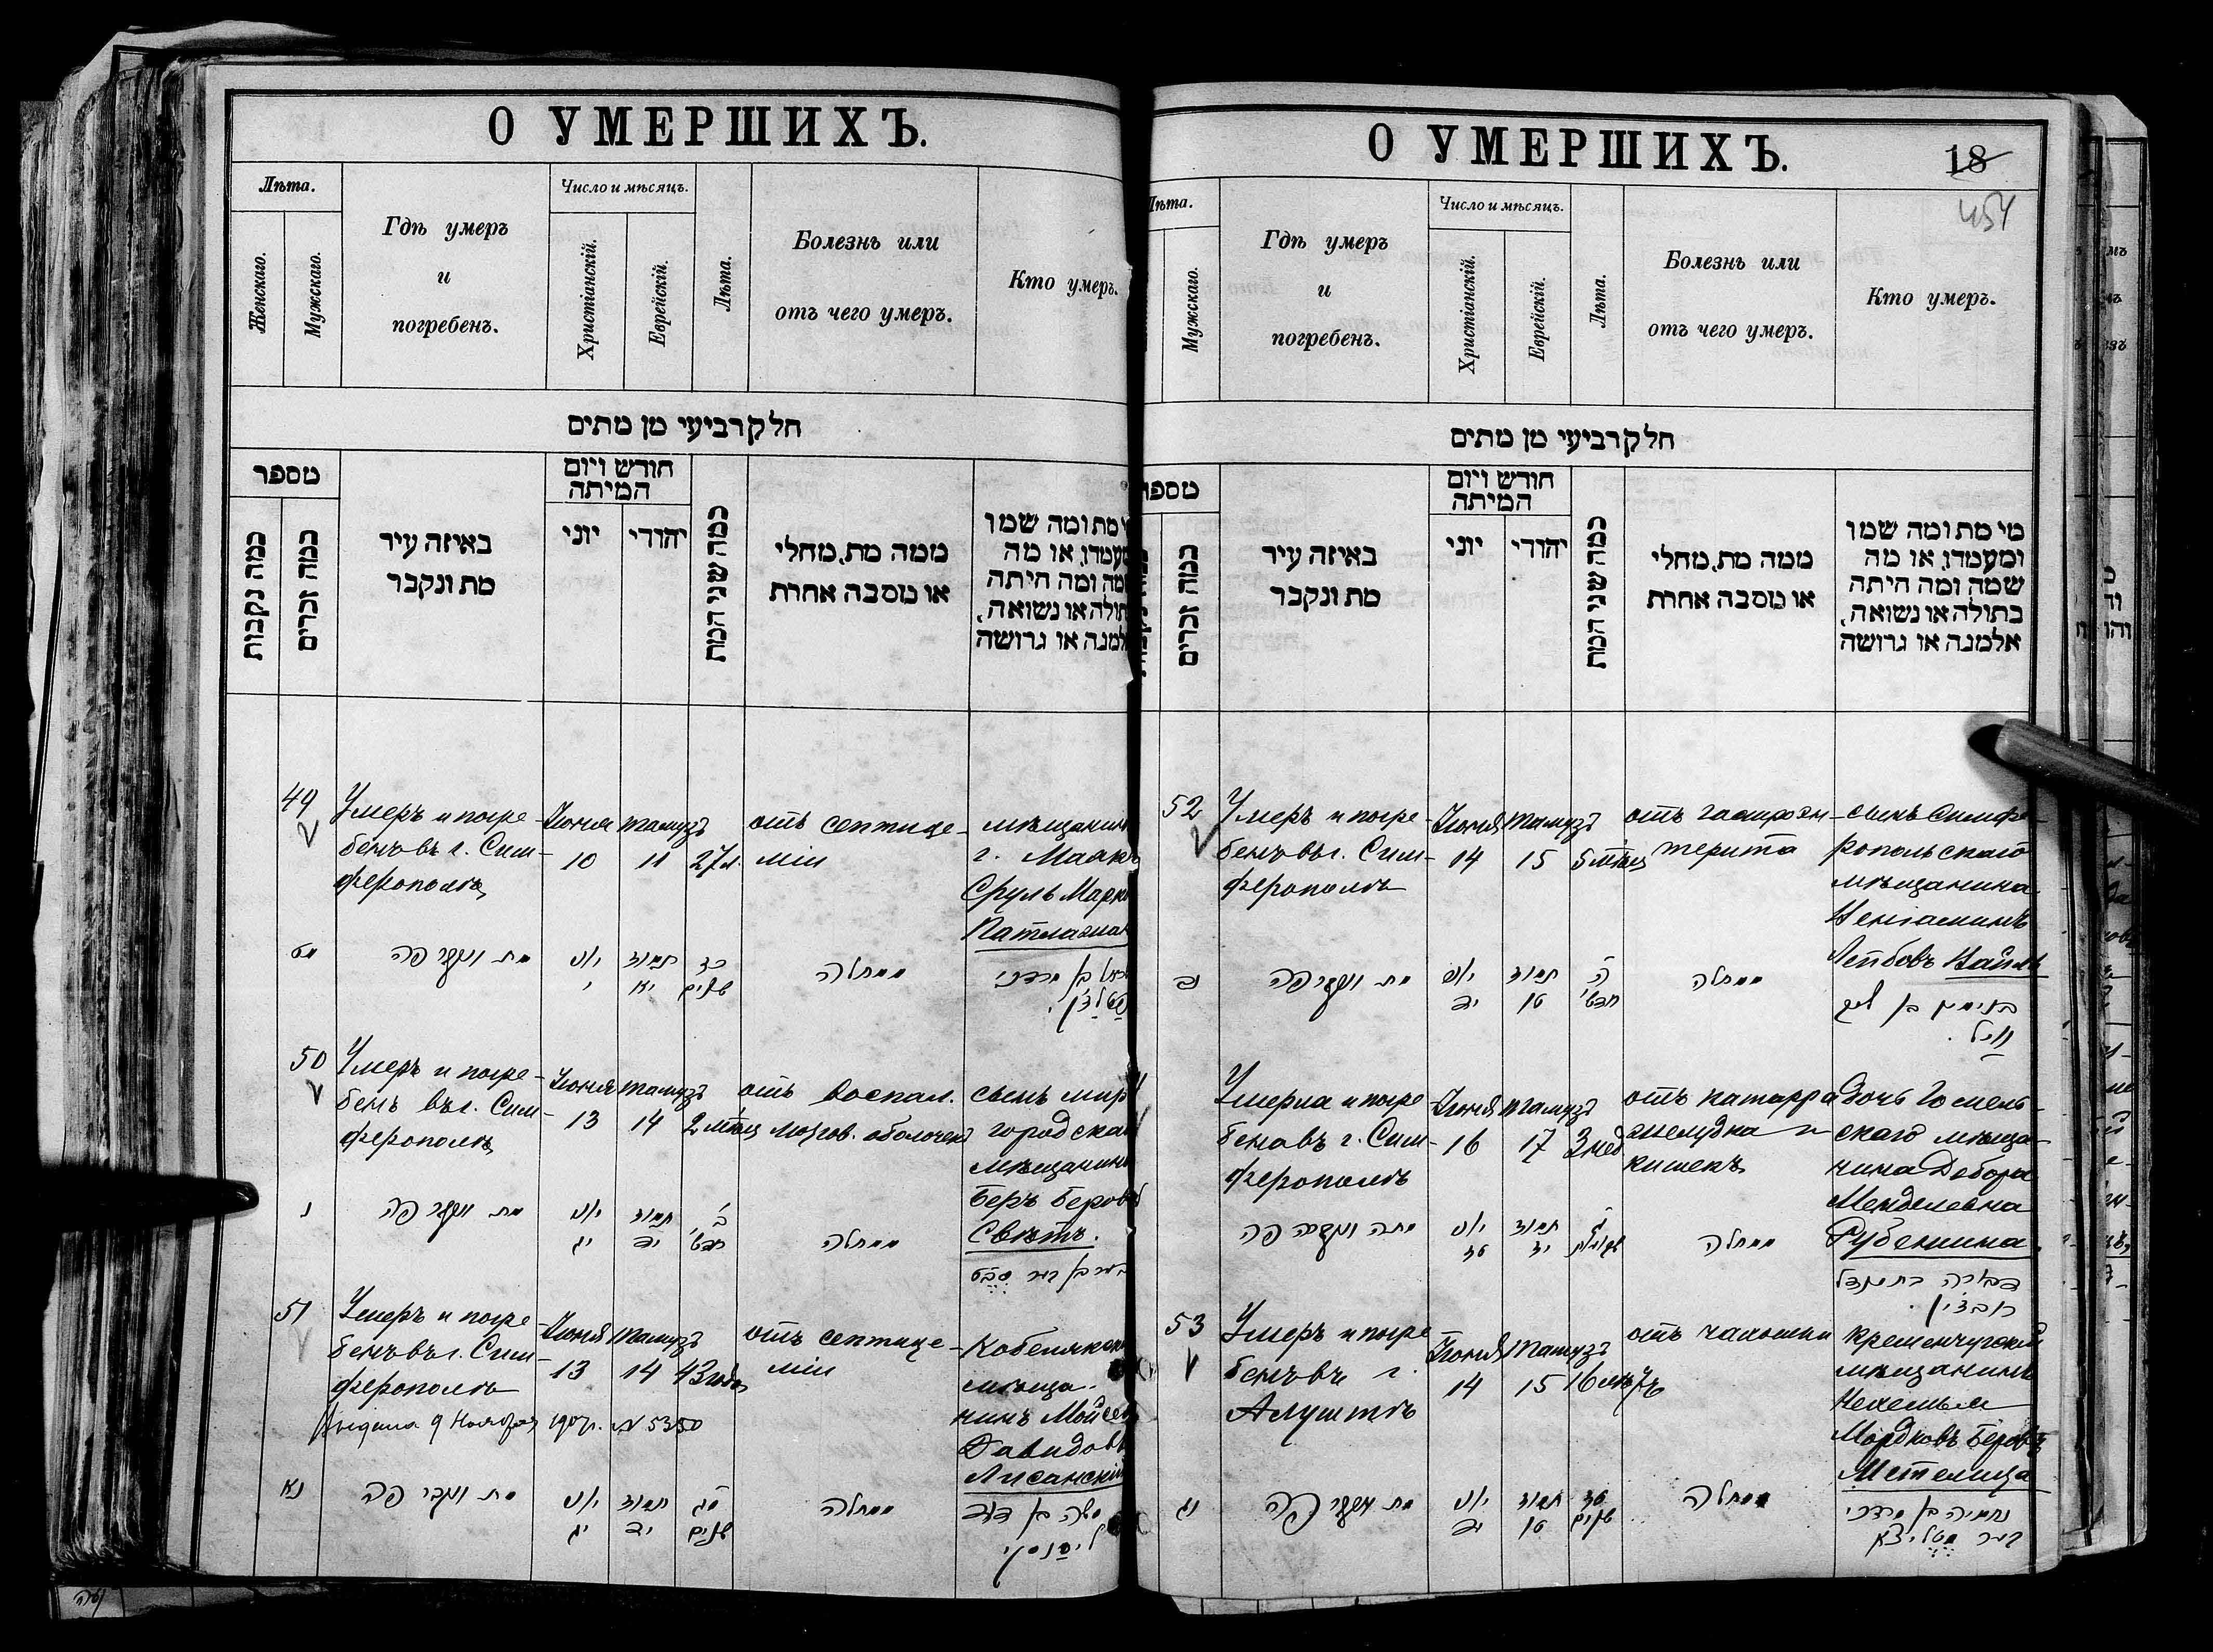 О УМЕРШИХЪ.
Лѣта.
Женскаго.
Мужскаго.
Гдѣ умеръ
и
погребенъ.
Число и мѣсяцъ.
Христіанскій.
Еврейскій.
Лѣта.
Болезнь или
отъ чего умеръ.
Кто умеръ.
חלק רביעי מן מתים
מספר
כמה נקבות
כמה זכרים
באיזה עיר
מת ונקבר
חודש ויום
המיתה
יוני
יהודי
כמה שני המת
ממה מת, מחלי
או מסבה אחרת
מת ומה שמו
או מה
ומה היתה
או נשואה,
או גרושה
49
Умеръ и погре-
бенъ въ г. Сим-
ферополѣ
Іюня
10
Тамузъ
11
27 л.
отъ септице-
міи
мѣщанин
г. Маяк
Сруль Марк
Патлажан
מט
מת ונקבר פה
יוני
י
תמוז
יא
כז
שנים
ממחלה
בן מרדכי
50
Умеръ и погре-
бенъ въ г. Сим-
ферополѣ
Іюня
13
Тамузъ
14
2 мѣсяц
отъ воспал.
мозгов. оболочекъ
сынъ мир
городска
мѣщанин
Беръ Беров
Свѣтъ.
נ
מת ונקבר פה
יוני
יג
תמוז
יד
ב'
חדשי'
ממחלה
51
Умеръ и погре-
бенъ въ г. Сим-
ферополѣ
Іюня
13
Тамузъ
14
43 года
отъ септице-
міи
Кобелякск
мѣща-
нинъ Мойсей
Давидовъ
Лисанскій
Выдана 9 Ноября 1907 г. № 5350
נא
מת ונקבר פה
יוני
יג
תמוז
יד
מג
שנים
ממחלה
משה בן דוד
ליסנסקי
О УМЕРШИХЪ.
18
454
Лѣта.
Мужскаго.
Гдѣ умеръ
и
погребенъ.
Число и мѣсяцъ.
Христіанскій.
Еврейскій.
Лѣта.
Болезнь или
отъ чего умеръ.
Кто умеръ.
חלק רביעי מן מתים
מספר
כמה זכרים
באיזה עיר
מת ונקבר
חודש ויום
המיתה
יוני
יהודי
כמה שני המת
ממה מת, מחלי
או מסבה אחרת
מי מת ומה שמו
ומעמדו, או מה
שמה ומה היתה
בתולה או נשואה,
אלמנה או גרושה
52
Умеръ и погре-
бенъ въ г. Сим-
ферополѣ
Іюня
14
Тамузъ
15
5 мѣсяц
отъ гастроэн-
терита
сынъ Симфе-
ропольскаго
мѣщанина
Веніаминъ
Лейбовъ Вайль
נב
מת ונקבר פה
יוני
יד
תמוז
טו
ה'
חדשי'
ממחלה
בנימין בן ליב
וויל.
Умерла и погре
бена въ г. Сим-
ферополѣ
Іюня
16
Тамузъ
17
3 нед
отъ катарра
желудка и
кишекъ
дочь Гомель-
скаго мѣща-
нина Дебора
Менделевна
Рубенчина
מתה ונקברה פה
יוני
טז
תמוז
יז
ג'
שבועות
ממחלה
דבורה בת מנדל
53
Умеръ и погре
бенъ въ г.
Алуштѣ
Іюня
14
Тамузъ
15
16 лѣтъ
отъ чахотки
Кременчугскій
мѣщанинъ
Нехемья
Мордковъ Беровъ
Метелица
נג
מת ונקבר פה
יוני
יד
תמוז
טו
טז
שנים
ממחלה
נחמיה בן מרדכי
בער מטליצא